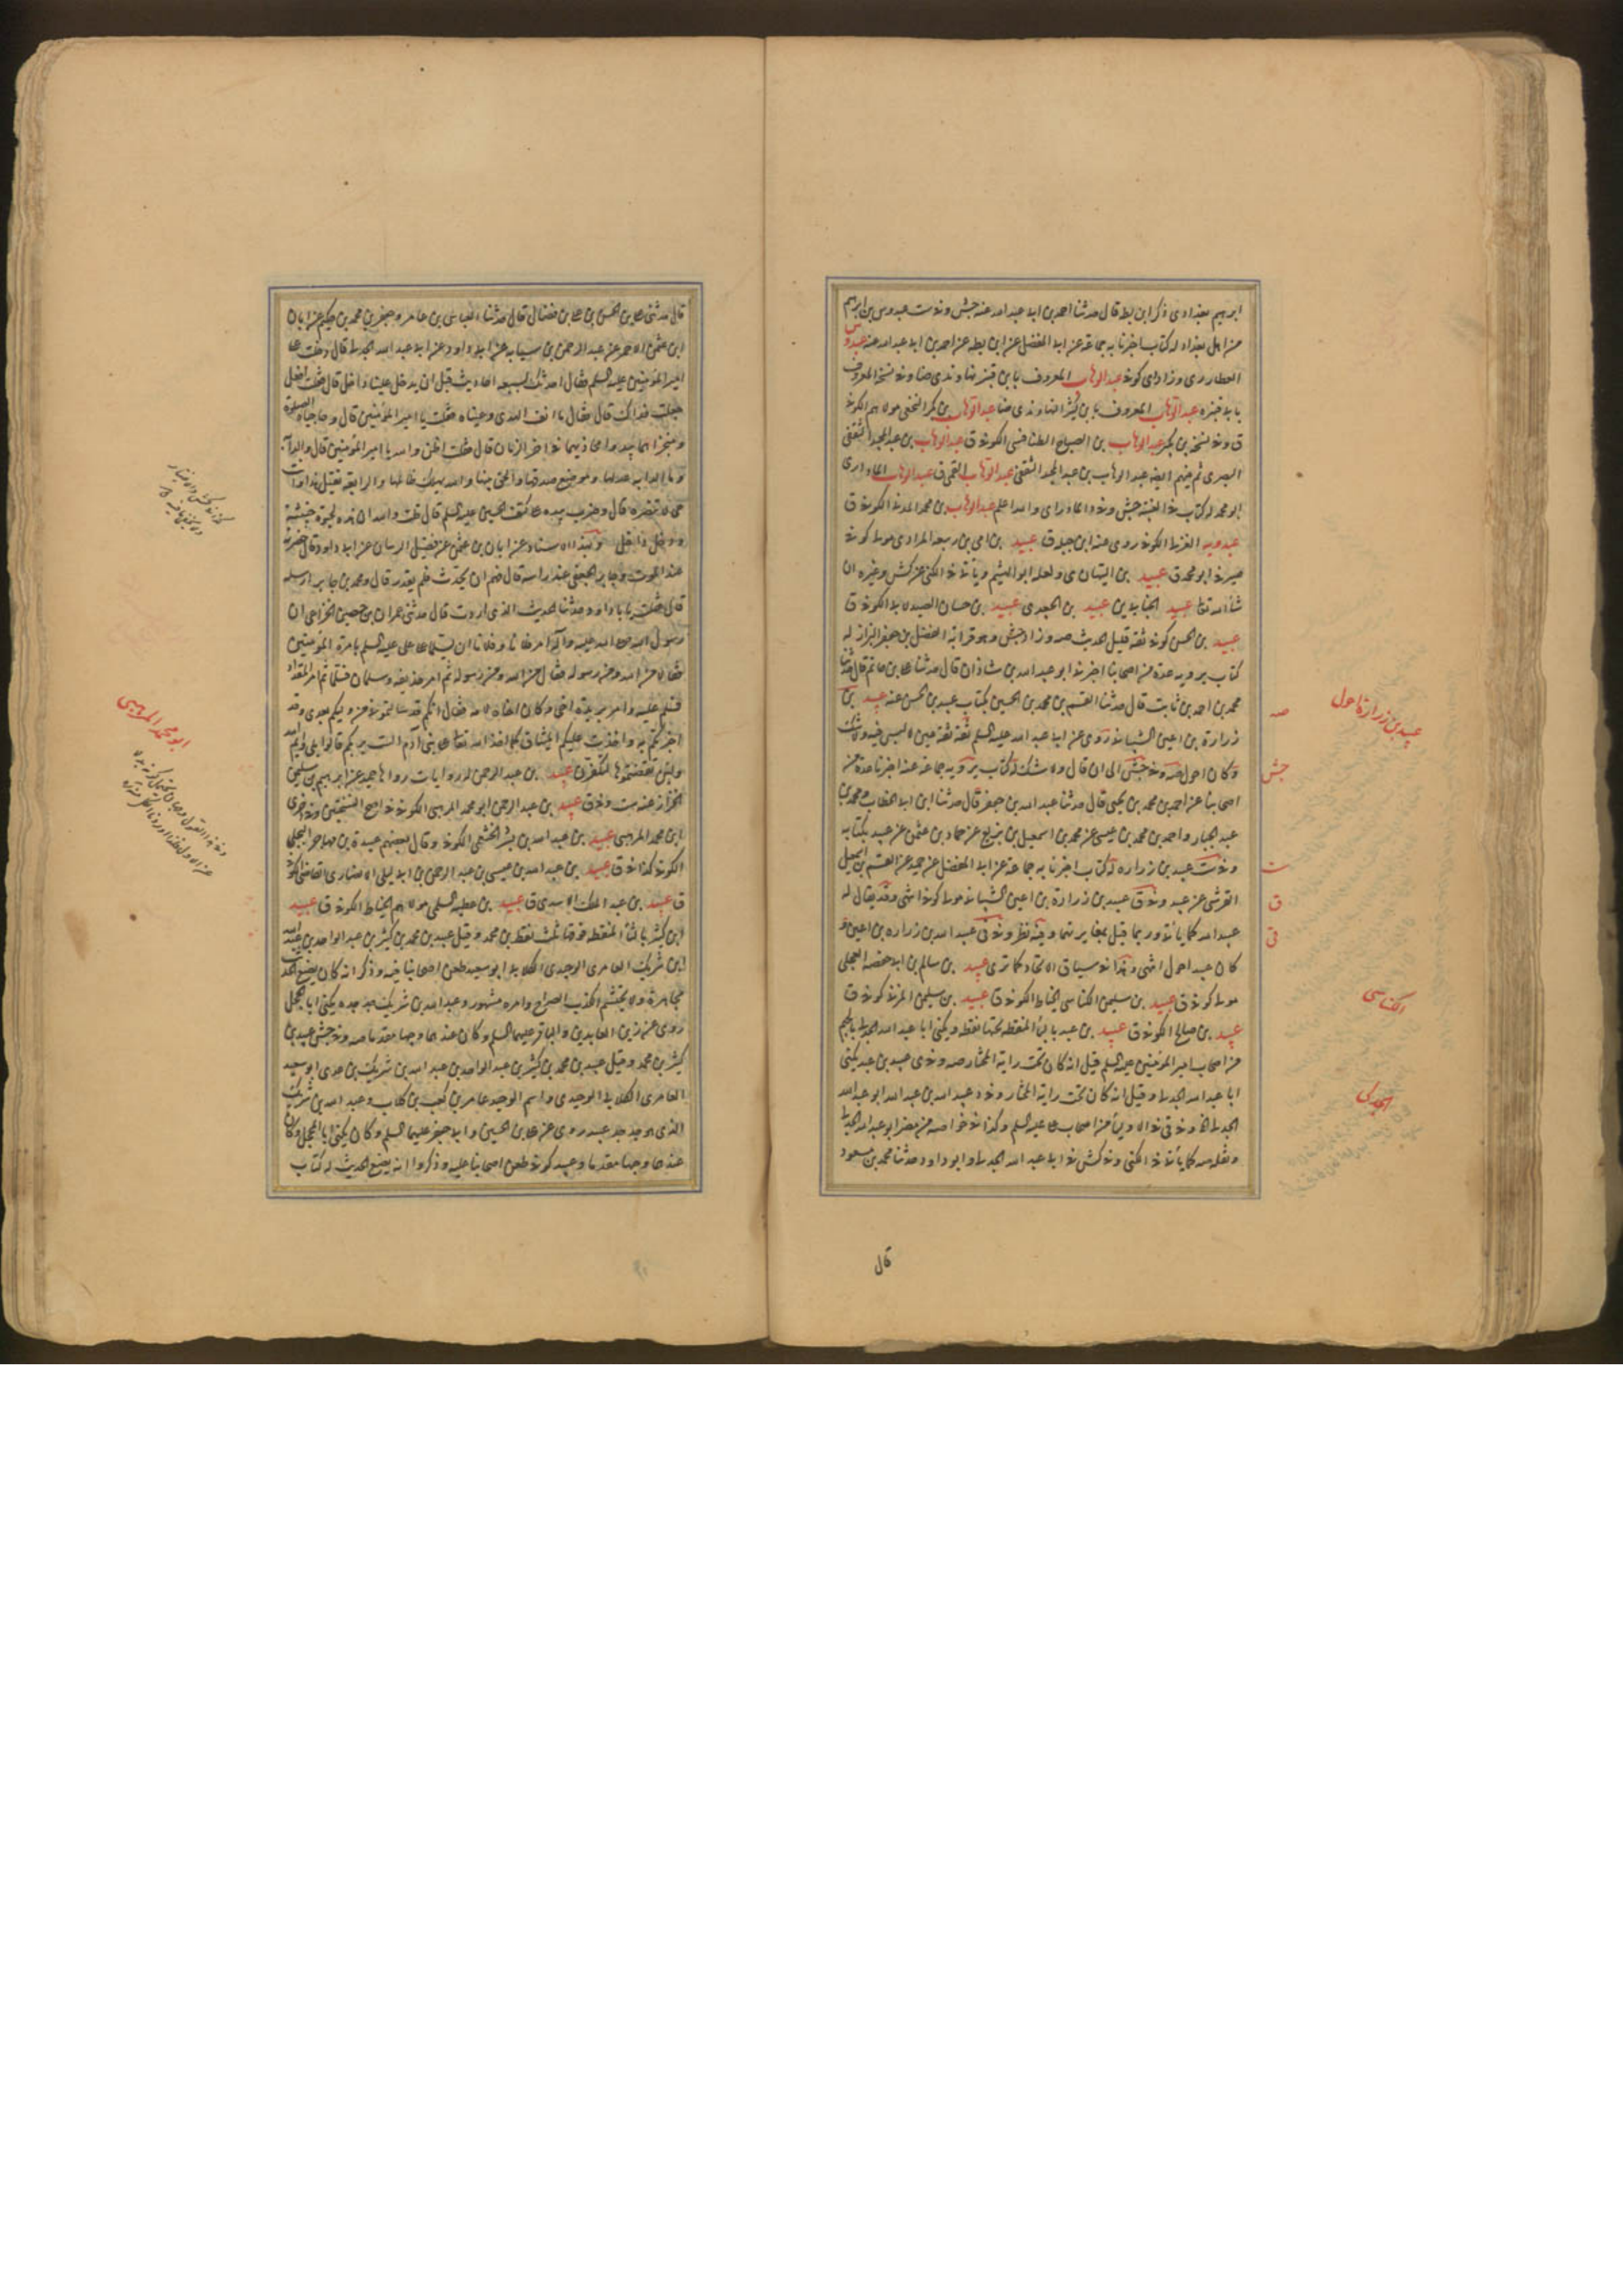 ابرهيم بغدادى ذكر ابن بطه قال حدثنا احمد بن ابى عبد الله عنه جش وفى ست عبدوس بن ابرهيم
من اهل بغداد له كتاب اخبرنا به جماعة عن ابى المفضل عن ابن بطه عن احمد بن ابى عبد الله عنه عبدوس
العطار رى وزاد اى كوفى عبد الوهاب المعروف بابن قنبر
عبد الوهاب المعروف بابن كثير عبد الوهاب بن بكر النخعى مولاهم الكوفى
ق وفى نسخة بن بكير عبد الوهاب بن الصباح الطنافسى الكوفى ق عبد الوهاب بن عبد المجيد الثقفى
البصرى عبد الوهاب بن عبد المجيد الثقفى عبد الوهاب القمى ق عبد الوهاب المادراى
ابو محمد له كتاب فى الغيبة جش وفى د المادراى والله اعلم عبد الوهاب بن محمد المدنى الكوفى ق
عبدويه الكوفى روى عنه ابن جبلة ق عبيد بن امى بن ربيعه المرادى مولى كوفى
صيرفى ابو محمد ق عبيد بن التيهان ى ولعله ابو الهيثم وياتى فى الكنى عن كش وغيره ان
شاء الله تعالى عبيد عبيد بن الجعدى عبيد بن حسان الصيدلانى الكوفى ق
عبيد بن الحسن كوفى ثقة قليل الحديث صه وزاد جش وهو قرابة الفضل بن جعفر البزاز له
كتاب يرويه عدة من اصحابنا اخبرنى ابو عبد الله بن شاذان قال حدثنا على بن حاتم قال حدثنا
محمد بن احمد بن ثابت قال حدثنا القسم بن محمد بن الحسين بكتاب عبيد بن الحسن عنه عبيد بن
زرارة بن اعين الشيبانى روى عن ابى عبد الله عليه السلم ثقة ثقة عين لا لبس فيه ولا شك
وكان احول صه وفى جش الى ان قال ولا شك له كتاب يرويه جماعة عنه اخبرنا عدة من
اصحابنا عن احمد بن محمد بن يحيى قال حدثنا عبد الله بن جعفر قال حدثنا ابن ابى الخطاب ومحمد بن
عبد الجبار واحمد بن محمد بن عيسى عن محمد بن اسمعيل بن بزيع عن حماد بن عثمن عن عبيد بكتابه
وفى ست عبيد بن زراره له كتاب اخبرنا به جماعة عن ابى المفضل عن حميد عن القسم بن اسمعيل
القرشى عن عبيد وفى ق عبيد بن زرارة بن اعين الشيبانى مولى كوفى انتهى وقد يقال له
عبد الله كما ياتى وربما قيل بمغايرتهما وفيه نظر وفى قى عبد الله بن زراره بن اعين و
كان عبيد احول انتهى وهذا فى سياق الاتحاد كما ترى عبيد بن سالم بن ابى حفصه العجلى
مولى كوفى ق عبيد بن سليمن الكناسى الخياط الكوفى ق عبيد بن سليمن المزنى كوفى ق
عبيد بن صالح الكوفى ق عبيد بن عبد بالباء المنقطة تحتها نقطة ويكنى ابا عبد الله الجدلى بالجيم
من اصحاب امير المؤمنين عليه السلم قيل انه كان تحت راية المختار صه وفى ى عبيد بن عبد يكنى
ابا عبد الله الجدلى وقيل انه كان تحت راية المختار وفى د عبيد الله بن عبد الله ابو عبد الله
الجدلى وفى قى من اصحاب على عليه السلم وكذا فى خواصه من مضر ابو عبد الله الجدلى
ونقله صه كما ياتى فى الكنى وفى كش فى ابى عبد الله الجدلى وابو داود حدثنا محمد بن مسعود
قال
عبيد بن زرارة احول
صه
جش
ست
ق
قى
الكناسى
الجدلى
قال حدثنى على بن الحسن بن على بن فضال قال حدثنا العباس بن عامر وجعفر بن محمد بن حكيم عن ابان
ابن عثمن الاحمر عن عبد الرحمن بن سيابه عن ابى داود عن ابى عبد الله الجدلى قال دخلت على
امير المؤمنين عليه السلم فقال احدثك بسبعة احاديث قبل ان يدخل علينا داخل قال قلت افعل
جعلت فداك قال فقال ما انف الهدى وعيناه فقلت يا امير المؤمنين قال وحاجباه الضلالة
ومنخراها تبدو مخازيهما فى اخر الزمان قال قلت اظن والله يا امير المؤمنين قال والدابة
وما الدابة عدلها وموضع صدقها والحق بينها والله مهلك ظالمها والرابعة يقتل هذا وانت
حى لا تنصره قال وضرب بيده على كتف الحسين عليه السلم قال قلت والله ان هذه لحيوة خبيثة
ودخل داخل وبهذا الاسناد عن ابان بن عثمن عن فضيل الرسان عن ابى داود قال حضرته
عند الموت وجابر الجعفى عند راسه قال فهم ان يحدث فلم يقدر قال ومحمد بن جابر ارسله
قال فقلت يا با داود حدثنا الحديث الذى اردت قال حدثنى عمران بن حصين الخزاعى ان
رسول الله صلى الله عليه واله امر فلانا وفلانا ان يسلما على على عليه السلم بامرة المؤمنين
فقالا من الله ومن رسوله فقال من الله ومن رسوله ثم امر حذيفه وسلمان فسلما ثم امر المقداد
فسلم عليه وامر بريدة اخى وكان اخاه لامه فقال انكم قد سالتمونى من وليكم بعدى وقد
اخبرتكم به واخذت عليكم الميثاق كما اخذ الله تعالى على بنى ادم الست بربكم قالوا بلى وايم الله
ولئن نقضتموها لتكفرن عبيد بن عبد الرحمن له روايات رواها حميد عن ابرهيم بن سليمن
الخزاز عنه ست وفى ق عبيد بن عبد الرحمن ابو محمد المرهبى الكوفى فى اصح النسختين وفى اخرى
ابن محمد المرهبى عبيد بن عبد الله بن بشر الخثعمى الكوفى وقال بعضهم عبيدة بن مهاجر البجلى
الكوفى كذا فى ق عبيد بن عبد الله بن عيسى بن عبد الرحمن بن ابى ليلى الانصارى القاضى كوفى
ق عبيد بن عبد الملك الاسدى ق عبيد بن عطيه السلمى مولاهم الخياط الكوفى ق عبيد
ابن كثير بالثاء المنقطة فوقها ثلث نقط بن محمد وقيل عبيد بن محمد بن كثير بن عبد الواحد بن عبد الله
ابن شريك العامرى الوحيدى الكلابى ابو سعيد طعن اصحابنا فيه وذكر انه كان يضع الحديث
مجاهرة ولا يحتشم الكذب الصراح وامره مشهور وعبد الله بن شريك جد جده يكنى ابا المحجل
روى عن زين العابدين والباقر عليهما السلم وكان عندهما وجيها مقدما صه وفى جش عبيد بن
كثير بن محمد وقيل عبيد بن محمد بن كثير بن عبد الواحد بن عبد الله بن شريك بن عدى ابو سعيد
العامرى الكلابى الوحيدى واسم الوحيد عامر بن كعب بن كلاب وعبد الله بن شريك
الذى هو جد جد عبيد روى عن على بن الحسين وابى جعفر عليهما السلم وكان يكنى ابا المحجل وكان
عندهما وجيها مقدما وعبيد كوفى طعن اصحابنا عليه وذكروا انه يضع الحديث له كتاب
ابو محمد المرهبى